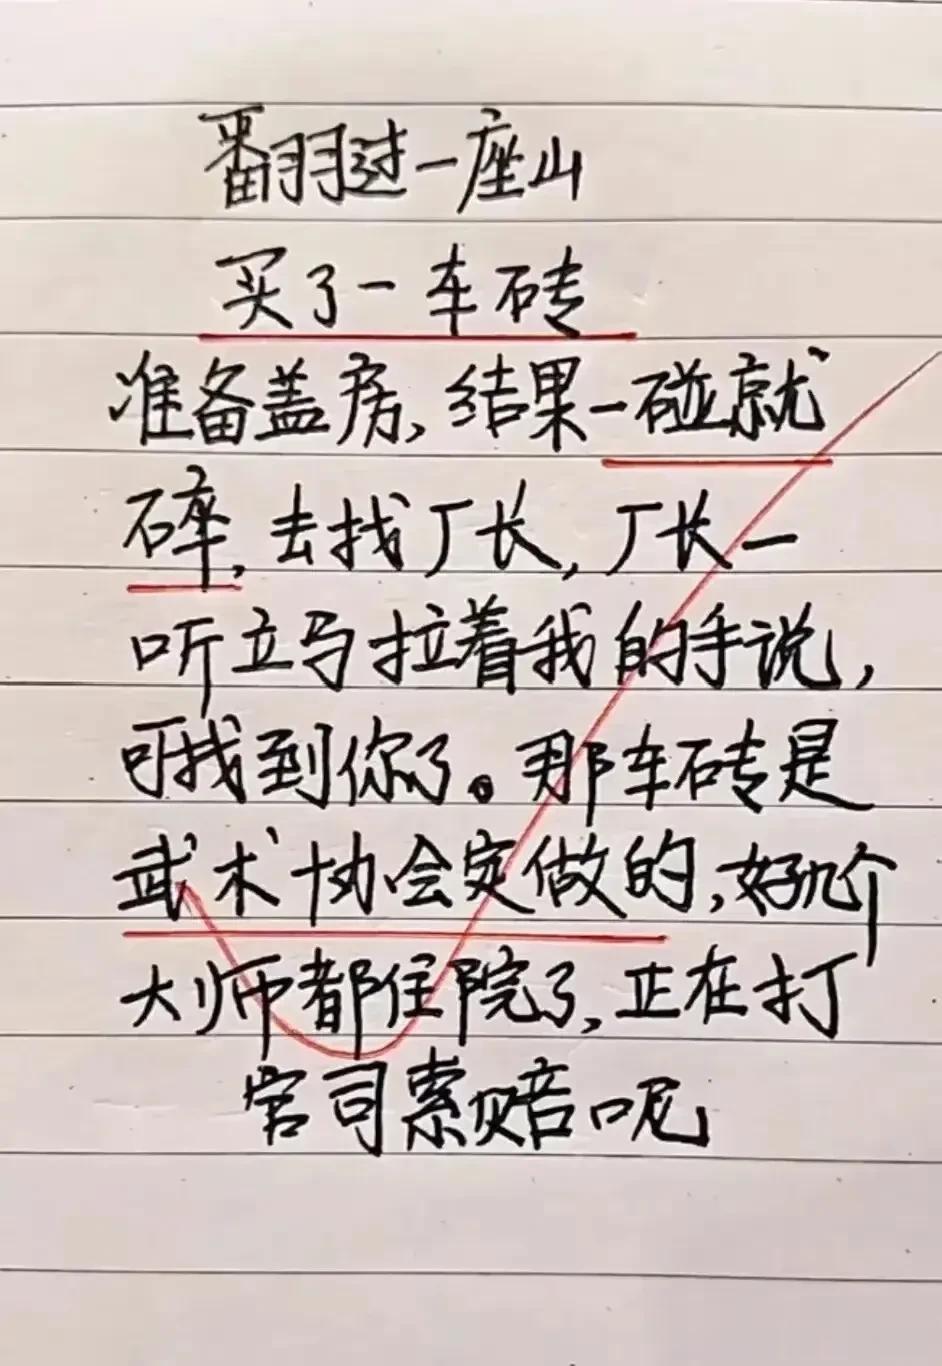 翻过一座山
买了一车砖
准备盖房,结果一碰就
碎,去找厂长,厂长一
听立马拉着我的手说,
可找到你了。那车砖是
武术协会定做的,好几个
大师都住院了,正在打
官司索赔呢